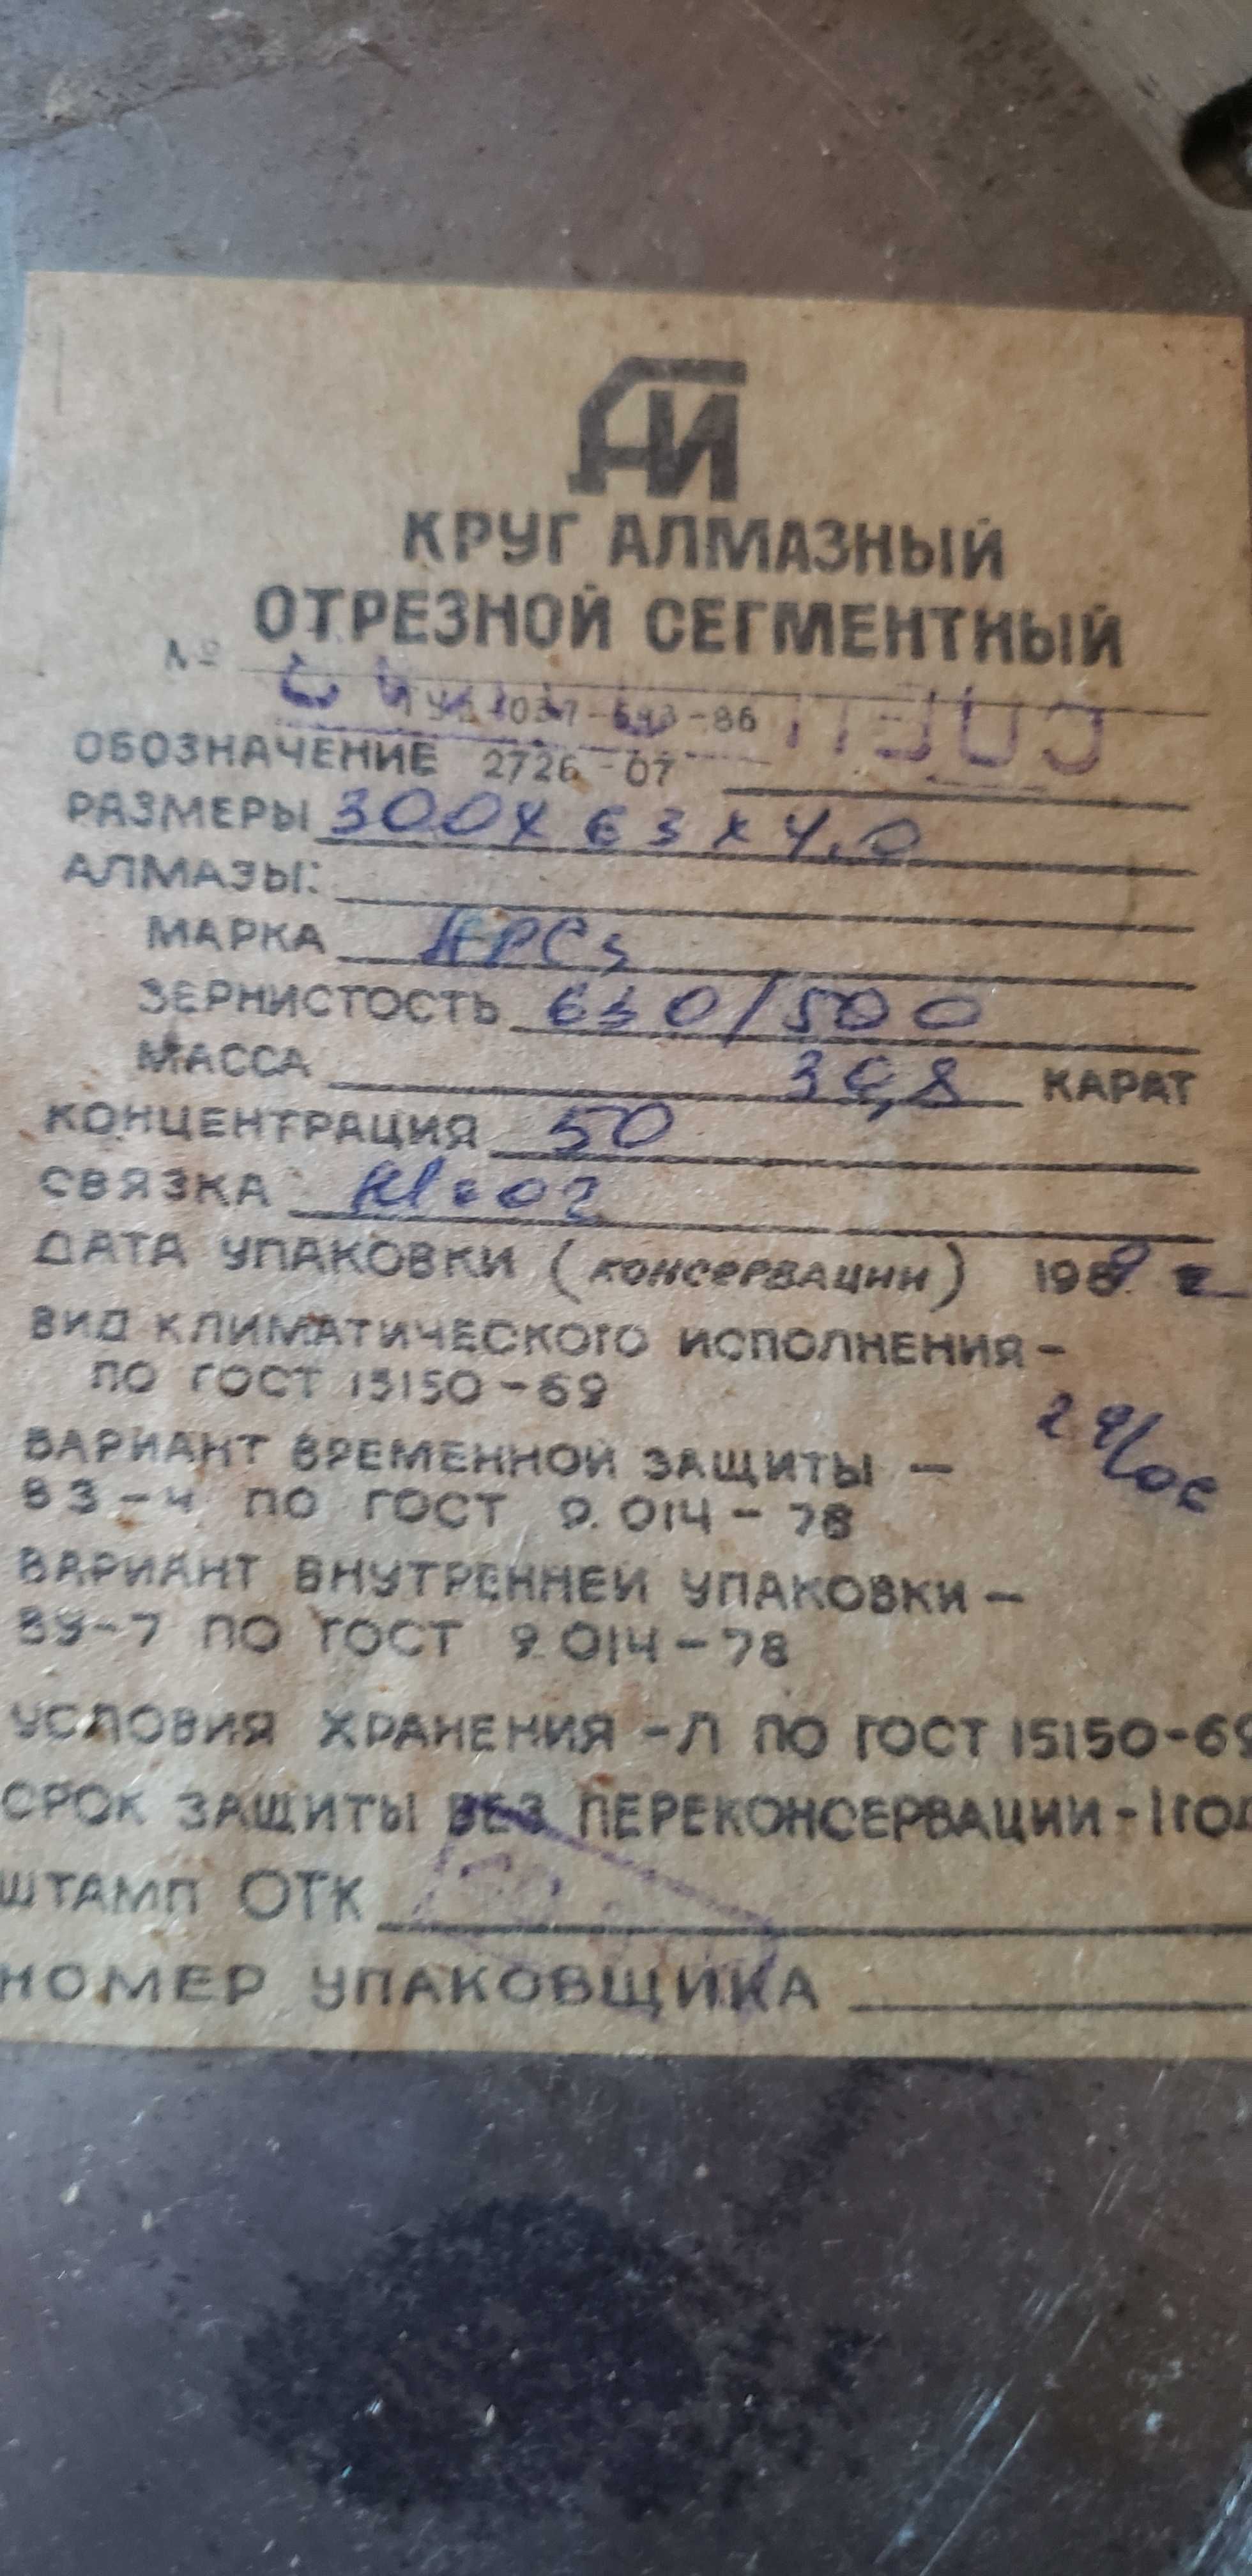 АИ
КРУГ АЛМАЗНЫЙ
ОТРЕЗНОЙ СЕГМЕНТНЫЙ
№
-86
ОБОЗНАЧЕНИЕ 2726-07
РАЗМЕРЫ 300х63х4,0
АЛМАЗЫ:
МАРКА
ЗЕРНИСТОСТЬ 630/500
МАССА КАРАТ
КОНЦЕНТРАЦИЯ 50
СВЯЗКА
ДАТА УПАКОВКИ (КОНСЕРВАЦИИ) 1989 г
ВИД КЛИМАТИЧЕСКОГО ИСПОЛНЕНИЯ-
ПО ГОСТ 15150-69
ВАРИАНТ ВРЕМЕННОЙ ЗАЩИТЫ —
ВЗ-4 ПО ГОСТ 9.014-78
ВАРИАНТ ВНУТРЕННЕЙ УПАКОВКИ —
ВУ-7 ПО ГОСТ 9.014-78
УСЛОВИЯ ХРАНЕНИЯ -Л ПО ГОСТ 15150-69
СРОК ЗАЩИТЫ БЕЗ ПЕРЕКОНСЕРВАЦИИ-1ГОД
ШТАМП ОТК
НОМЕР УПАКОВЩИКА